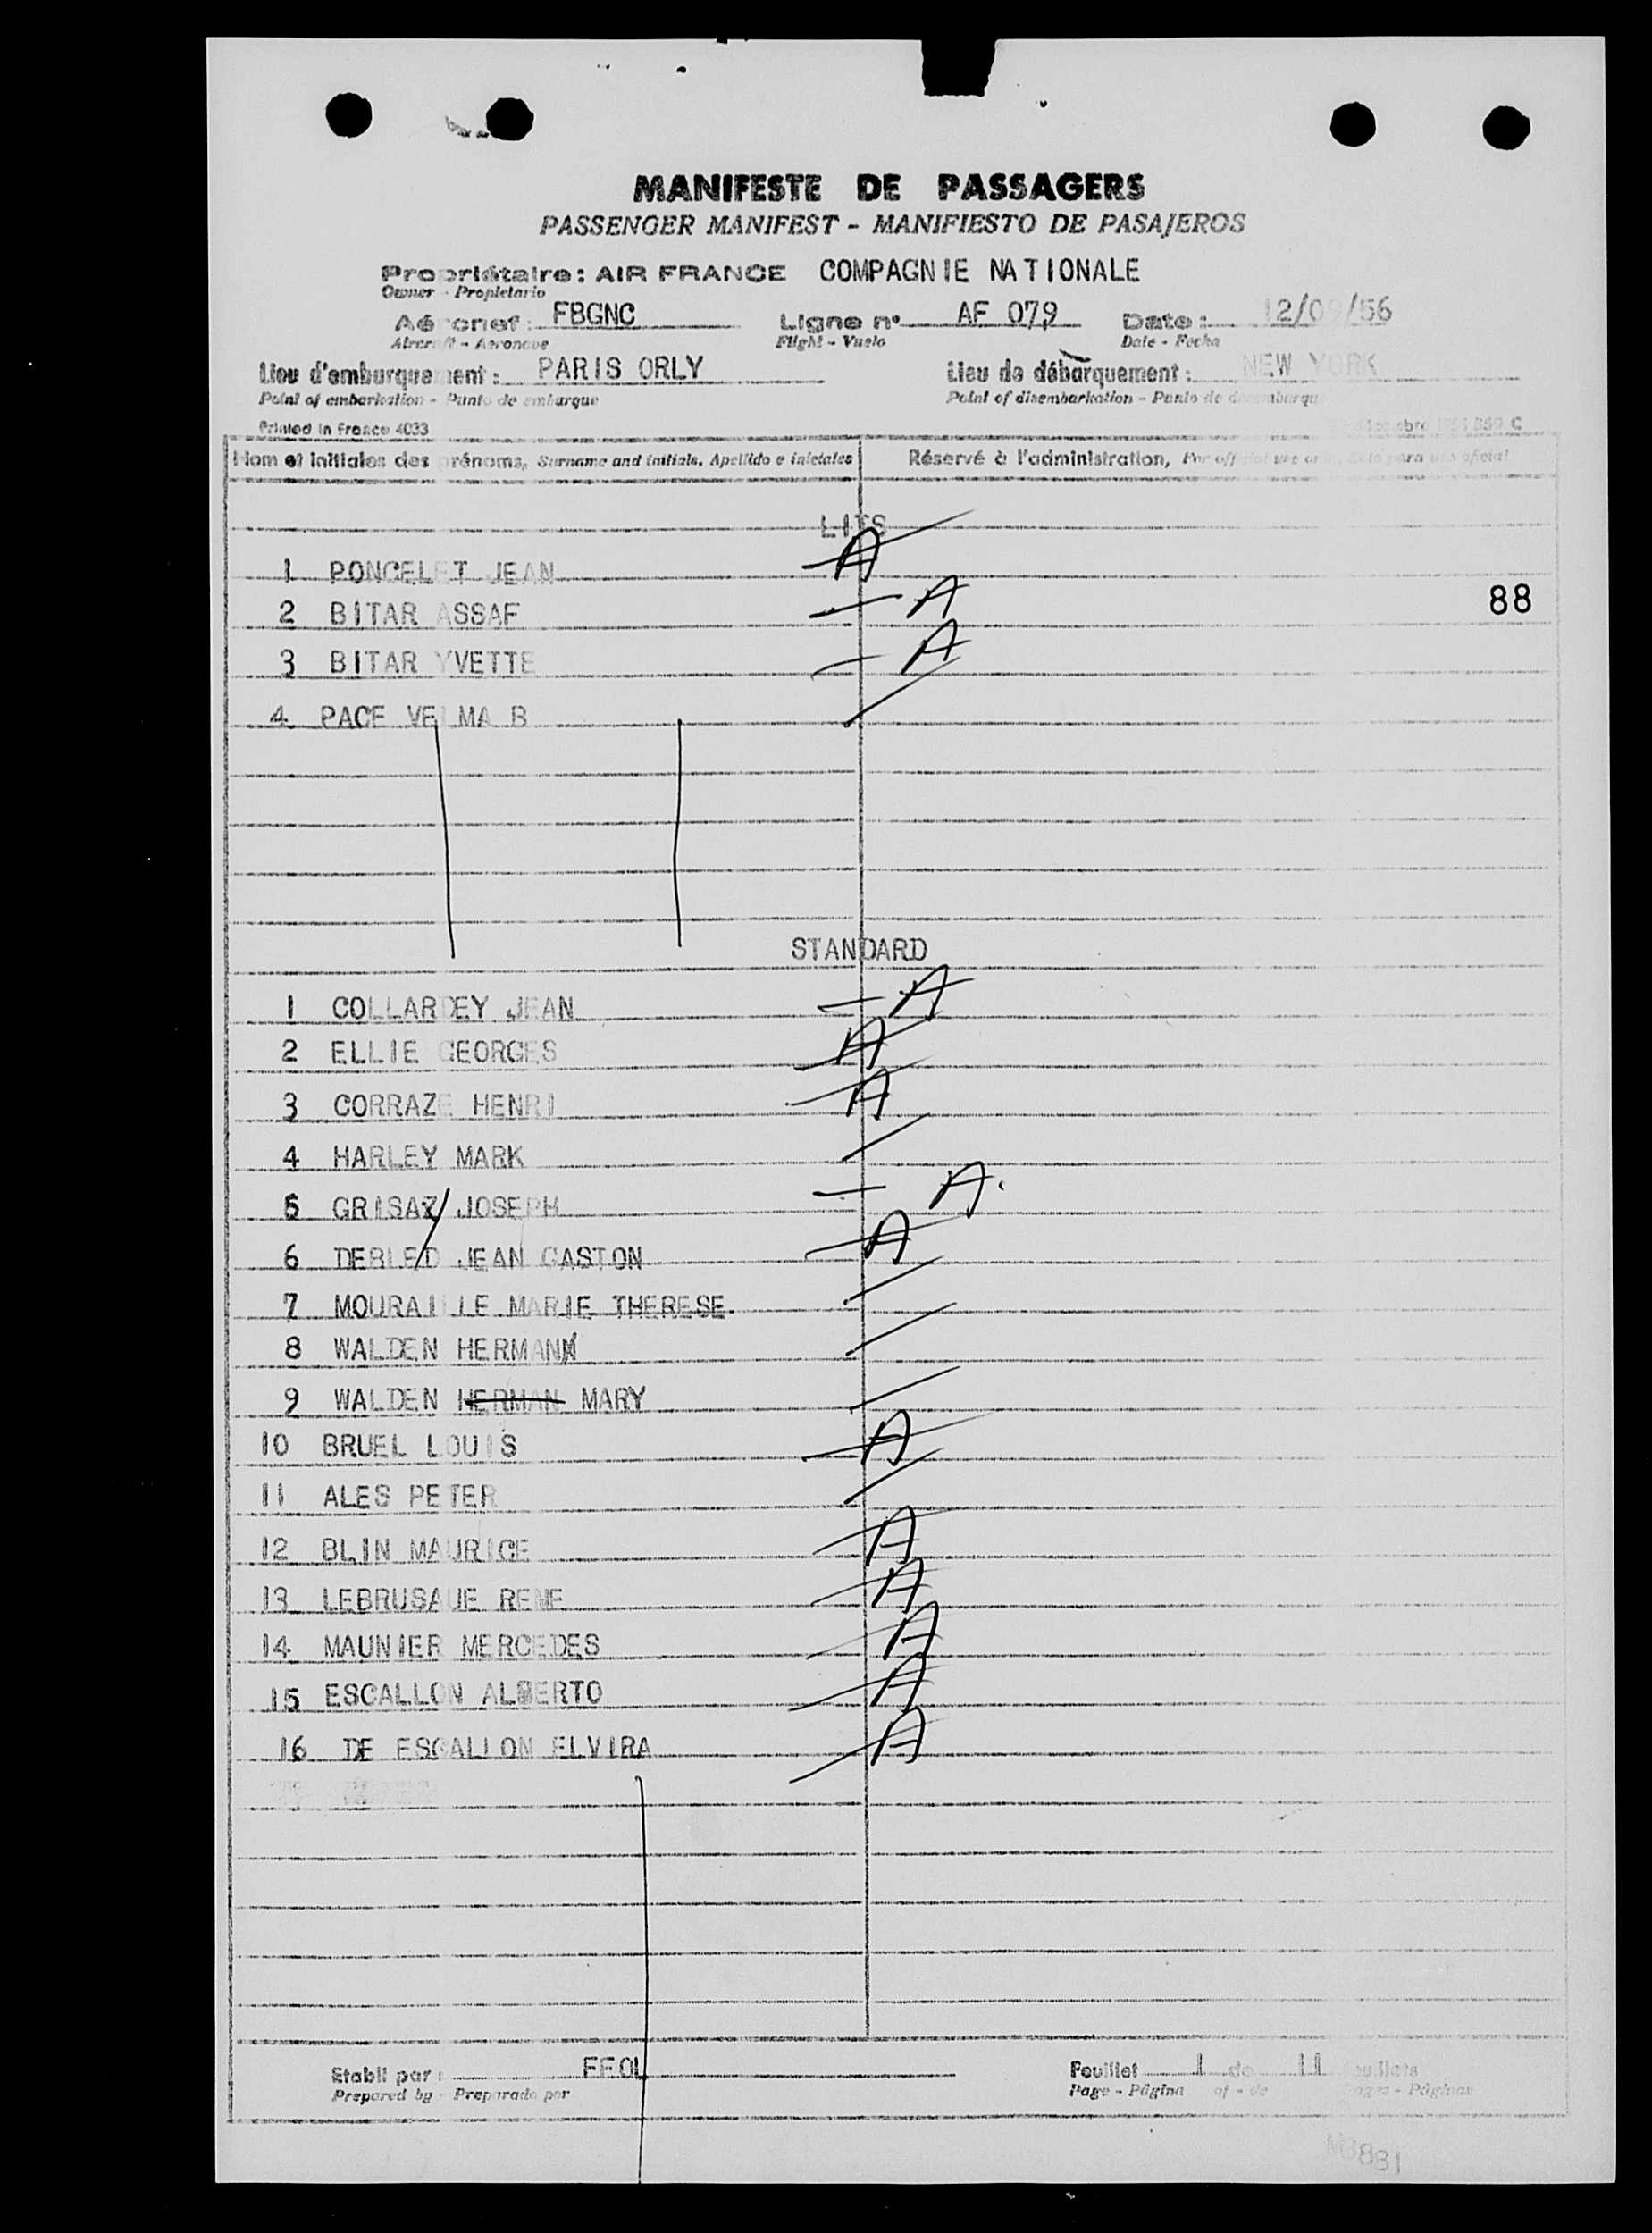 MANIFESTE DE PASSAGERS
PASSENGER MANIFEST - MANIFIESTO DE PASAJEROS
Propriétaire : AIR FRANCE COMPAGNIE NATIONALE
Owner - Propietario
Aéronef : FBGNC Ligne n° AF 079 Date : 12/09/56
Aircraft - Aeronave Flight - Vuelo Date - Fecha
Lieu d'embarquement : PARIS ORLY Lieu de débarquement : NEW YORK
Point of embarkation - Punto de embarque Point of disembarkation - Punto de desembarque
Printed in France 4033
Nom et initiales des prénoms, Surname and initials, Apellido e iniciales Réservé à l'administration, For official use only, Solo para uso oficial
LITS
1 PONCELET JEAN A
2 BITAR ASSAF A 88
3 BITAR YVETTE A
4 PACE VELMA B
STANDARD
1 COLLARDEY JEAN A
2 ELLIE GEORGES A
3 CORRAZE HENRI A
4 HARLEY MARK
5 GRISAZ/ JOSEPH A.
6 DEBLED JEAN GASTON A
7 MOURAILLE MARIE THERESE
8 WALDEN HERMANN
9 WALDEN HERMAN MARY
10 BRUEL LOUIS A
11 ALES PETER
12 BLIN MAURICE A
13 LEBRUSAUE RENE A
14 MAUNIER MERCEDES A
15 ESCALLON ALBERTO A
16 DE ESCALLON ELVIRA A
Etabli par : FFOL Feuillet 1 de 11 feuillets
Prepared by - Preparado por Page - Página of - de Pages - Páginas